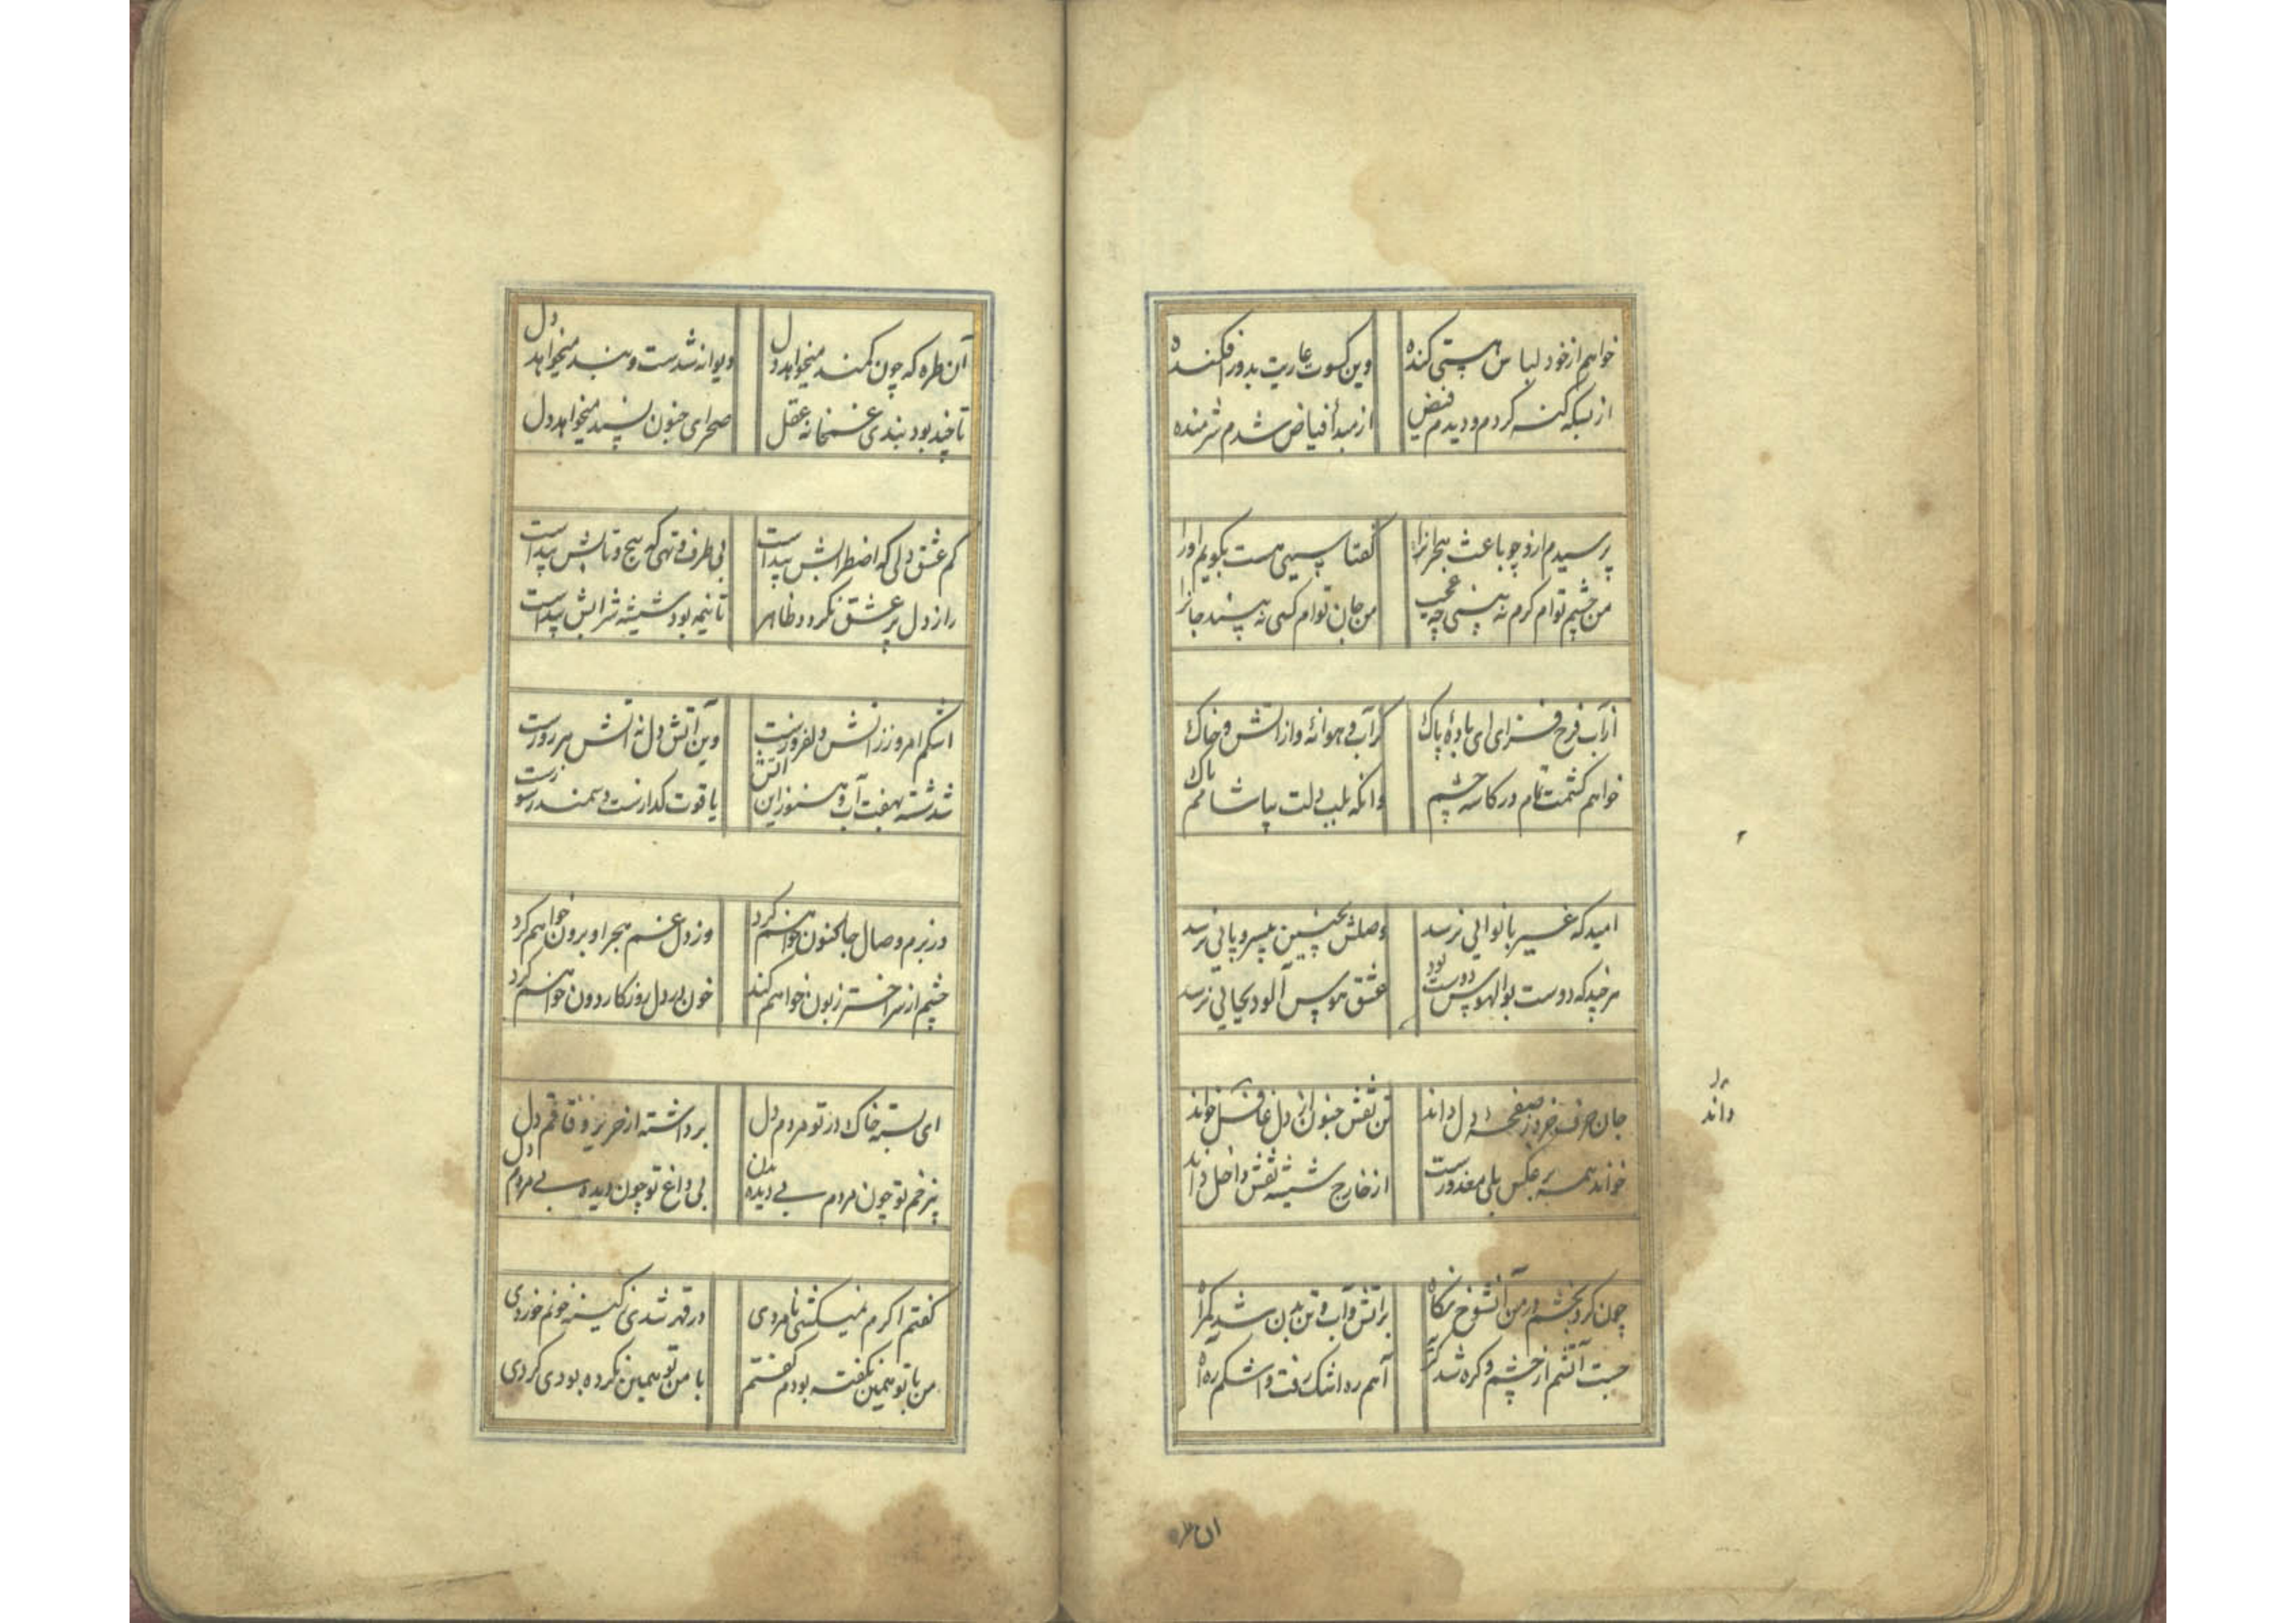 خواهم از خود لباس هستی کنده
وین کسوت عاریت بدور افکنده
از بسکه کنه کردم و دیدم فیض
از مبدأ فیاض شدم شرمنده
پرسیدم ازو چو باعث هجرانرا
کفتا سببی هست بکویم اورا
من چشم توام کرم نه بینی چه عجب
من جان توام کسی نه بیند جانرا
از آب فرح فزای ای بادهٔ پاک
کز آب و هوانهٔ و از آتش و خاک
خواهم کشمت تمام در کاسه چشم
وانکه بلب دلت بیاشامم پاک
امید که غیر بانوائی نرسد
وصلش بچنین بیسروپائی نرسد
هرچند که دوست بوالهوس دوست بود
عشق هوس آلود بجائی نرسد
جان حرف خرد ز صفحه دل داند
تن نقش جنون از دل غافل خواند
خواند همه بر عکس بلی معذورست
از خارج شیشه نقش داخل داند
چون کرد بخشم در من آنشوخ نکاه
بر آتش و آب و تن بدن شد یکراه
جست آتشم از چشم و کره شد
آهم ره اشک رفت و اشکم ره آه
داند
ان طره
آن طره که چون کمند میخواهد دل
دیوانه شدست و بند میخواهد دل
تا چند بود بندی غمخانه عقل
صحرای جنون پسند میخواهد دل
کم عشق دلی که اضطرابش پیداست
بی ظرف و تهی که پیچ و تابش پیداست
راز دل پر عشق نکردد ظاهر
تا نیمه بود شیشه شرابش پیداست
اشکم امروز ز آتش دلفروزست
وین آتش دل نه آتش هرروزست
شد شسته بهفت آب و هنوز این آتش
یاقوت کدازست و سمندرسوزست
در بزم وصال جا کنون خواهم کرد
وز دل غم هجر او برون خواهم کرد
چشم از سر اختر زبون خواهم کند
خون در دل روزکار دون خواهم کرد
ای بسته خاک در تو مردم دل
برداشته از خزیز و قاقم دل
بی زخم تو چون مردم بی دیده بدن
بی داغ تو چون دیده بی مردم دل
کفتم اکرم نمیکشی نامردی
در قهر شدی ز کینه خونم خوردی
من با تو همین نکفته بودم کفتم
با من تو همین نکرده بودی کردی